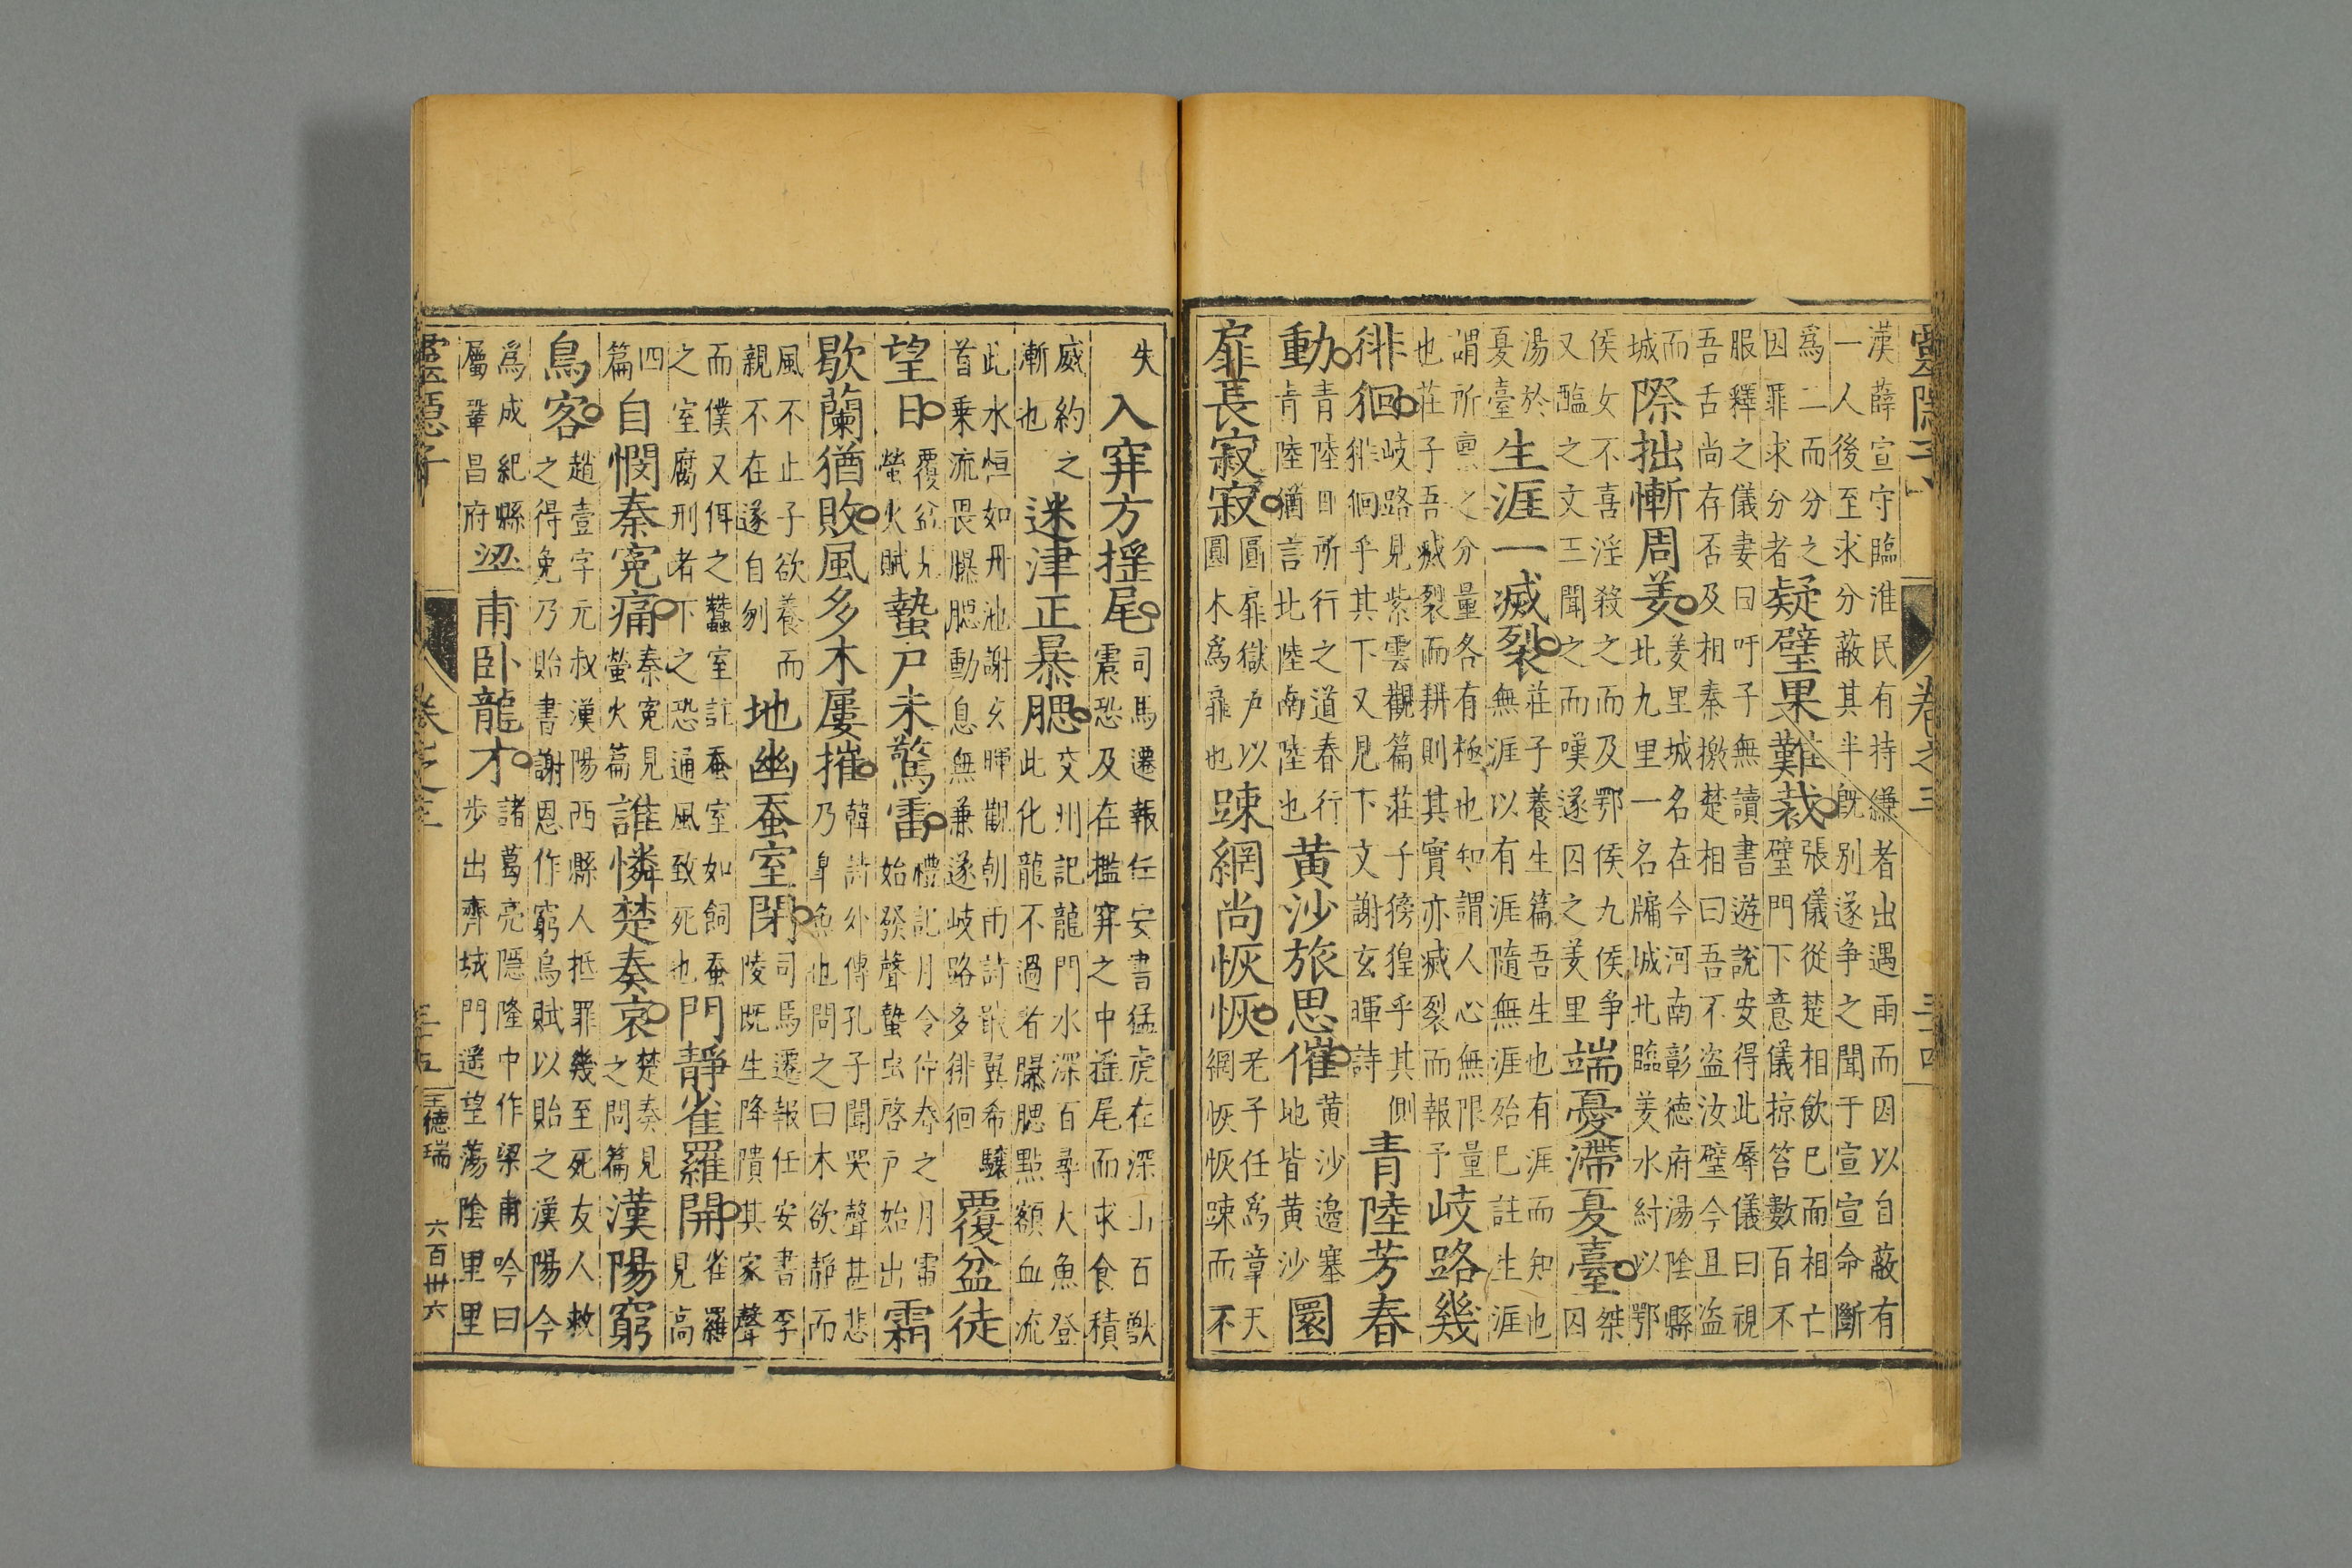 靈隱子 卷之三 三十四
漢薛宣守臨淮民有持縑者出遇雨而因以自蔽有
一人後至求分蔽其半旣別遂争之聞于宣宣命斷
爲二而分之
因罪求分者
疑璧果難裁
張儀從楚相飲巳而相亡
璧門下意儀掠笞數百不
服釋之儀妻曰吁子無讀書遊說安得此辱儀曰視
吾舌尚存否及相秦檄楚相曰吾不盗汝璧今且盗
而
城
際拙慚周羑
羑里城名在今河南彰德府湯陰縣
北九里一名牖城北臨羑水紂以鄂
侯女不喜淫殺之而及鄂侯九侯争
又醢之文王聞之而嘆遂囚之羑里
端憂滯夏臺
桀
囚
湯於
憂臺
生涯一滅裂
莊子養生篇吾生也有涯而知也
無涯以有涯隨無涯殆巳註生涯
謂所禀之分量各有極也知謂人心無限量
也莊子吾滅裂而耕則其實亦滅裂而報予
岐路幾
徘徊
岐路見紫雲觀篇莊子徬徨乎其側
徘徊乎其下又見下文謝玄暉詩
青陸芳春
動
青陸日所行之道春行
青陸猶言北陸南陸也
黄沙旅思催
黄沙邊塞
地皆黄沙
圜
扉長寂寂
圜扉獄户以
圓木爲扉也
踈網尚恢恢
老子任爲章天
網恢恢踈而不
失
入穽方揺尾
司馬遷報任安書猛虎在深山百獸
震恐及在檻穽之中揺尾而求食積
威約之
漸也
迷津正暴腮
交州記龍門水深百尋大魚登
此化龍不過者曝腮點額血流
此水恒如丹池謝玄暉觀朝雨詩戢翼希驤
首乗流畏曝腮動息無兼遂岐路多徘徊
覆盆徒
望日
覆盆九
螢火賦
蟄户未驚雷
禮記月令仲春之月雷
始發聲蟄虫啓户始出
霜
歇蘭猶敗風多木屢摧
韓詩外傳孔子聞哭聲甚悲
乃臯魚也問之曰木欲靜而
風不止子欲養而
親不在遂自刎
地幽蚕室閉
司馬遷報任安書李
陵既生降隤其家聲
而僕又佴之蠶室註蚕室如飼蚕
之室腐刑者下之恐通風致死也
門靜雀羅開
雀羅
見高
四
篇
自憫秦寃痛
秦寃見
螢火篇
誰憐楚奏哀
楚奏見
之問篇
漢陽窮
鳥客
趙壹字元叔漢陽西縣人抵罪幾至死友人救
之得免乃貽書謝恩作窮鳥賦以貽之漢陽今
爲成紀縣
屬鞏昌府
梁甫卧龍才
諸葛亮隱隆中作梁甫吟曰
步出齊城門遥望蕩陰里里
靈隱子 卷之三 三十五 王德瑞 六百卅六